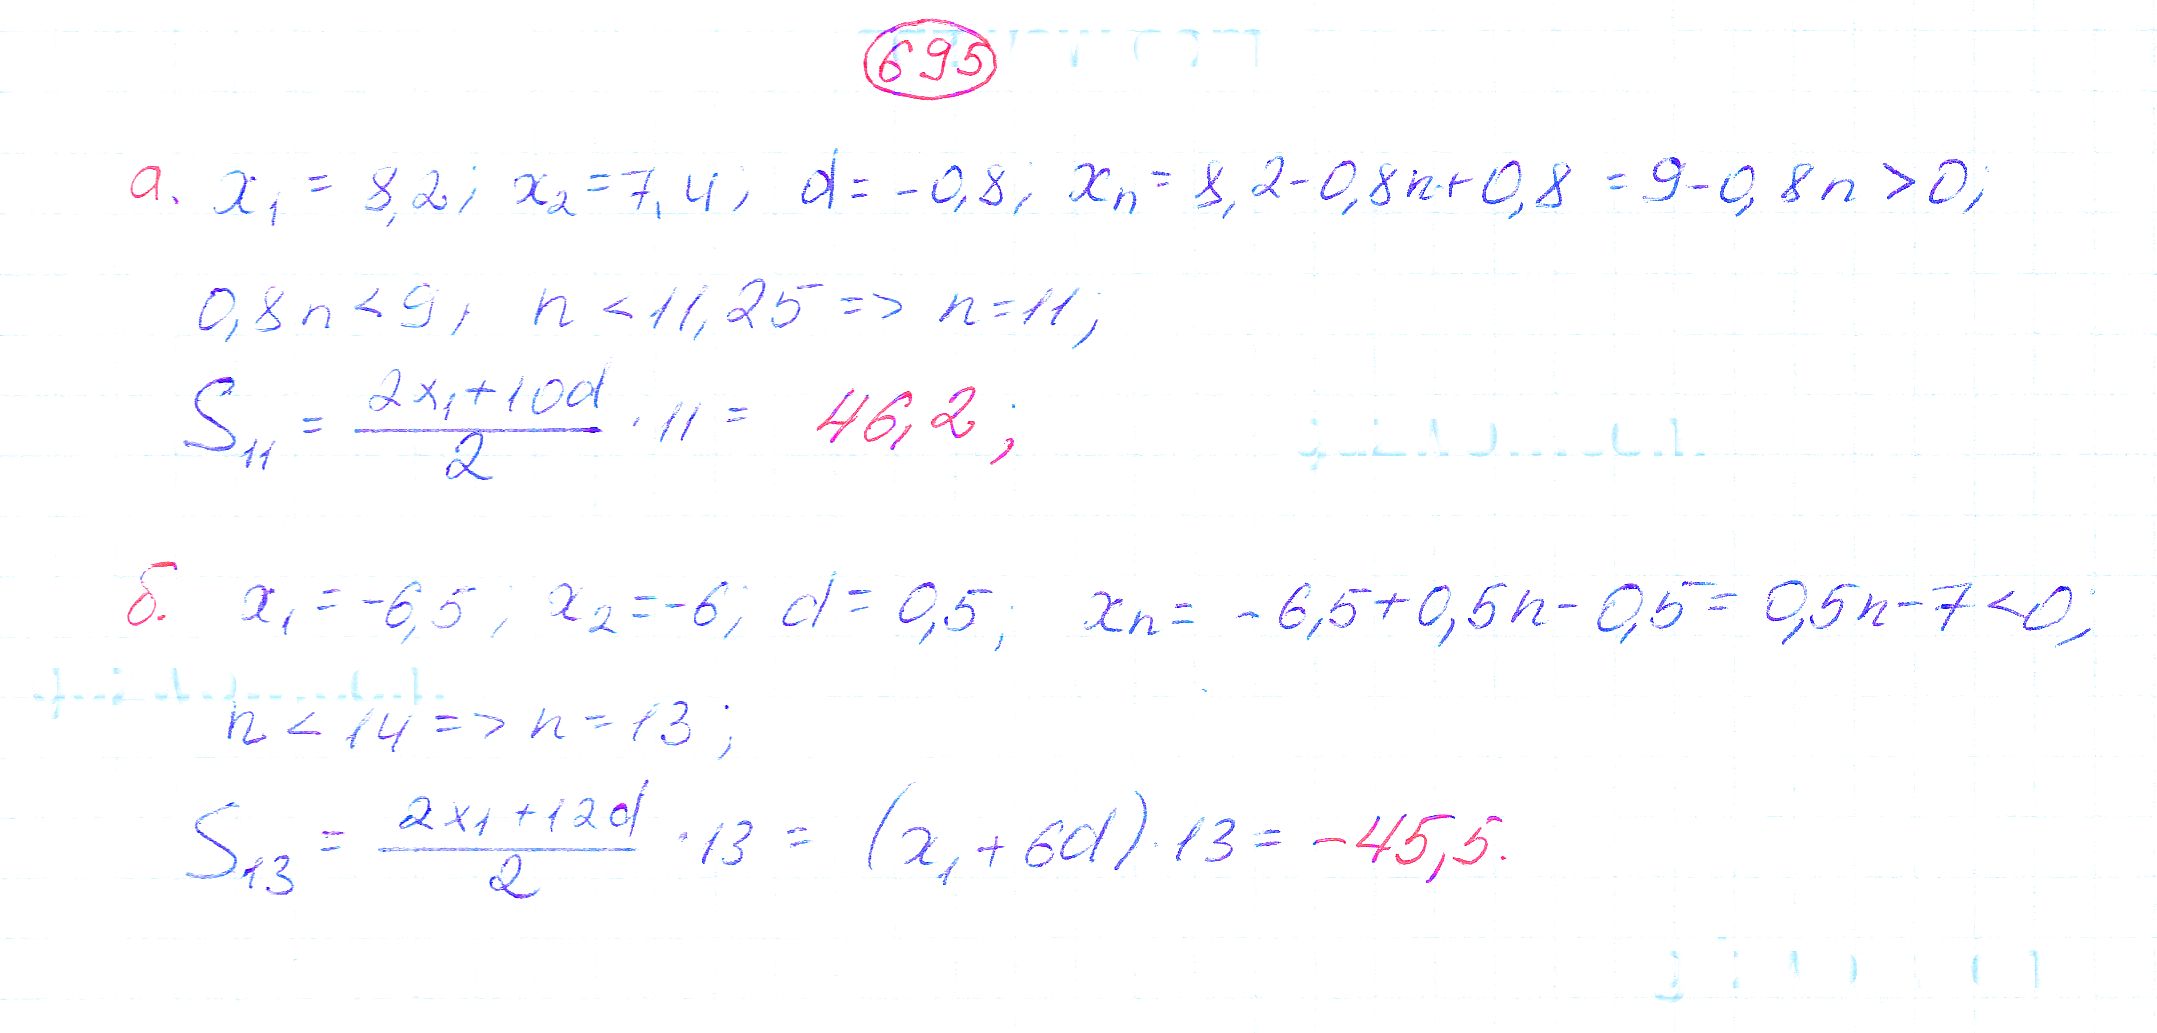 695
а. x₁ = 8,2; x₂ = 7,4; d = -0,8; xₙ = 8,2 - 0,8n + 0,8 = 9 - 0,8n > 0;
0,8n < 9; n < 11,25 => n = 11;
S₁₁ = (2x₁ + 10d)/2 · 11 = 46,2;
б. x₁ = -6,5; x₂ = -6; d = 0,5; xₙ = -6,5 + 0,5n - 0,5 = 0,5n - 7 < 0;
n < 14 => n = 13;
S₁₃ = (2x₁ + 12d)/2 · 13 = (x₁ + 6d) · 13 = -45,5.